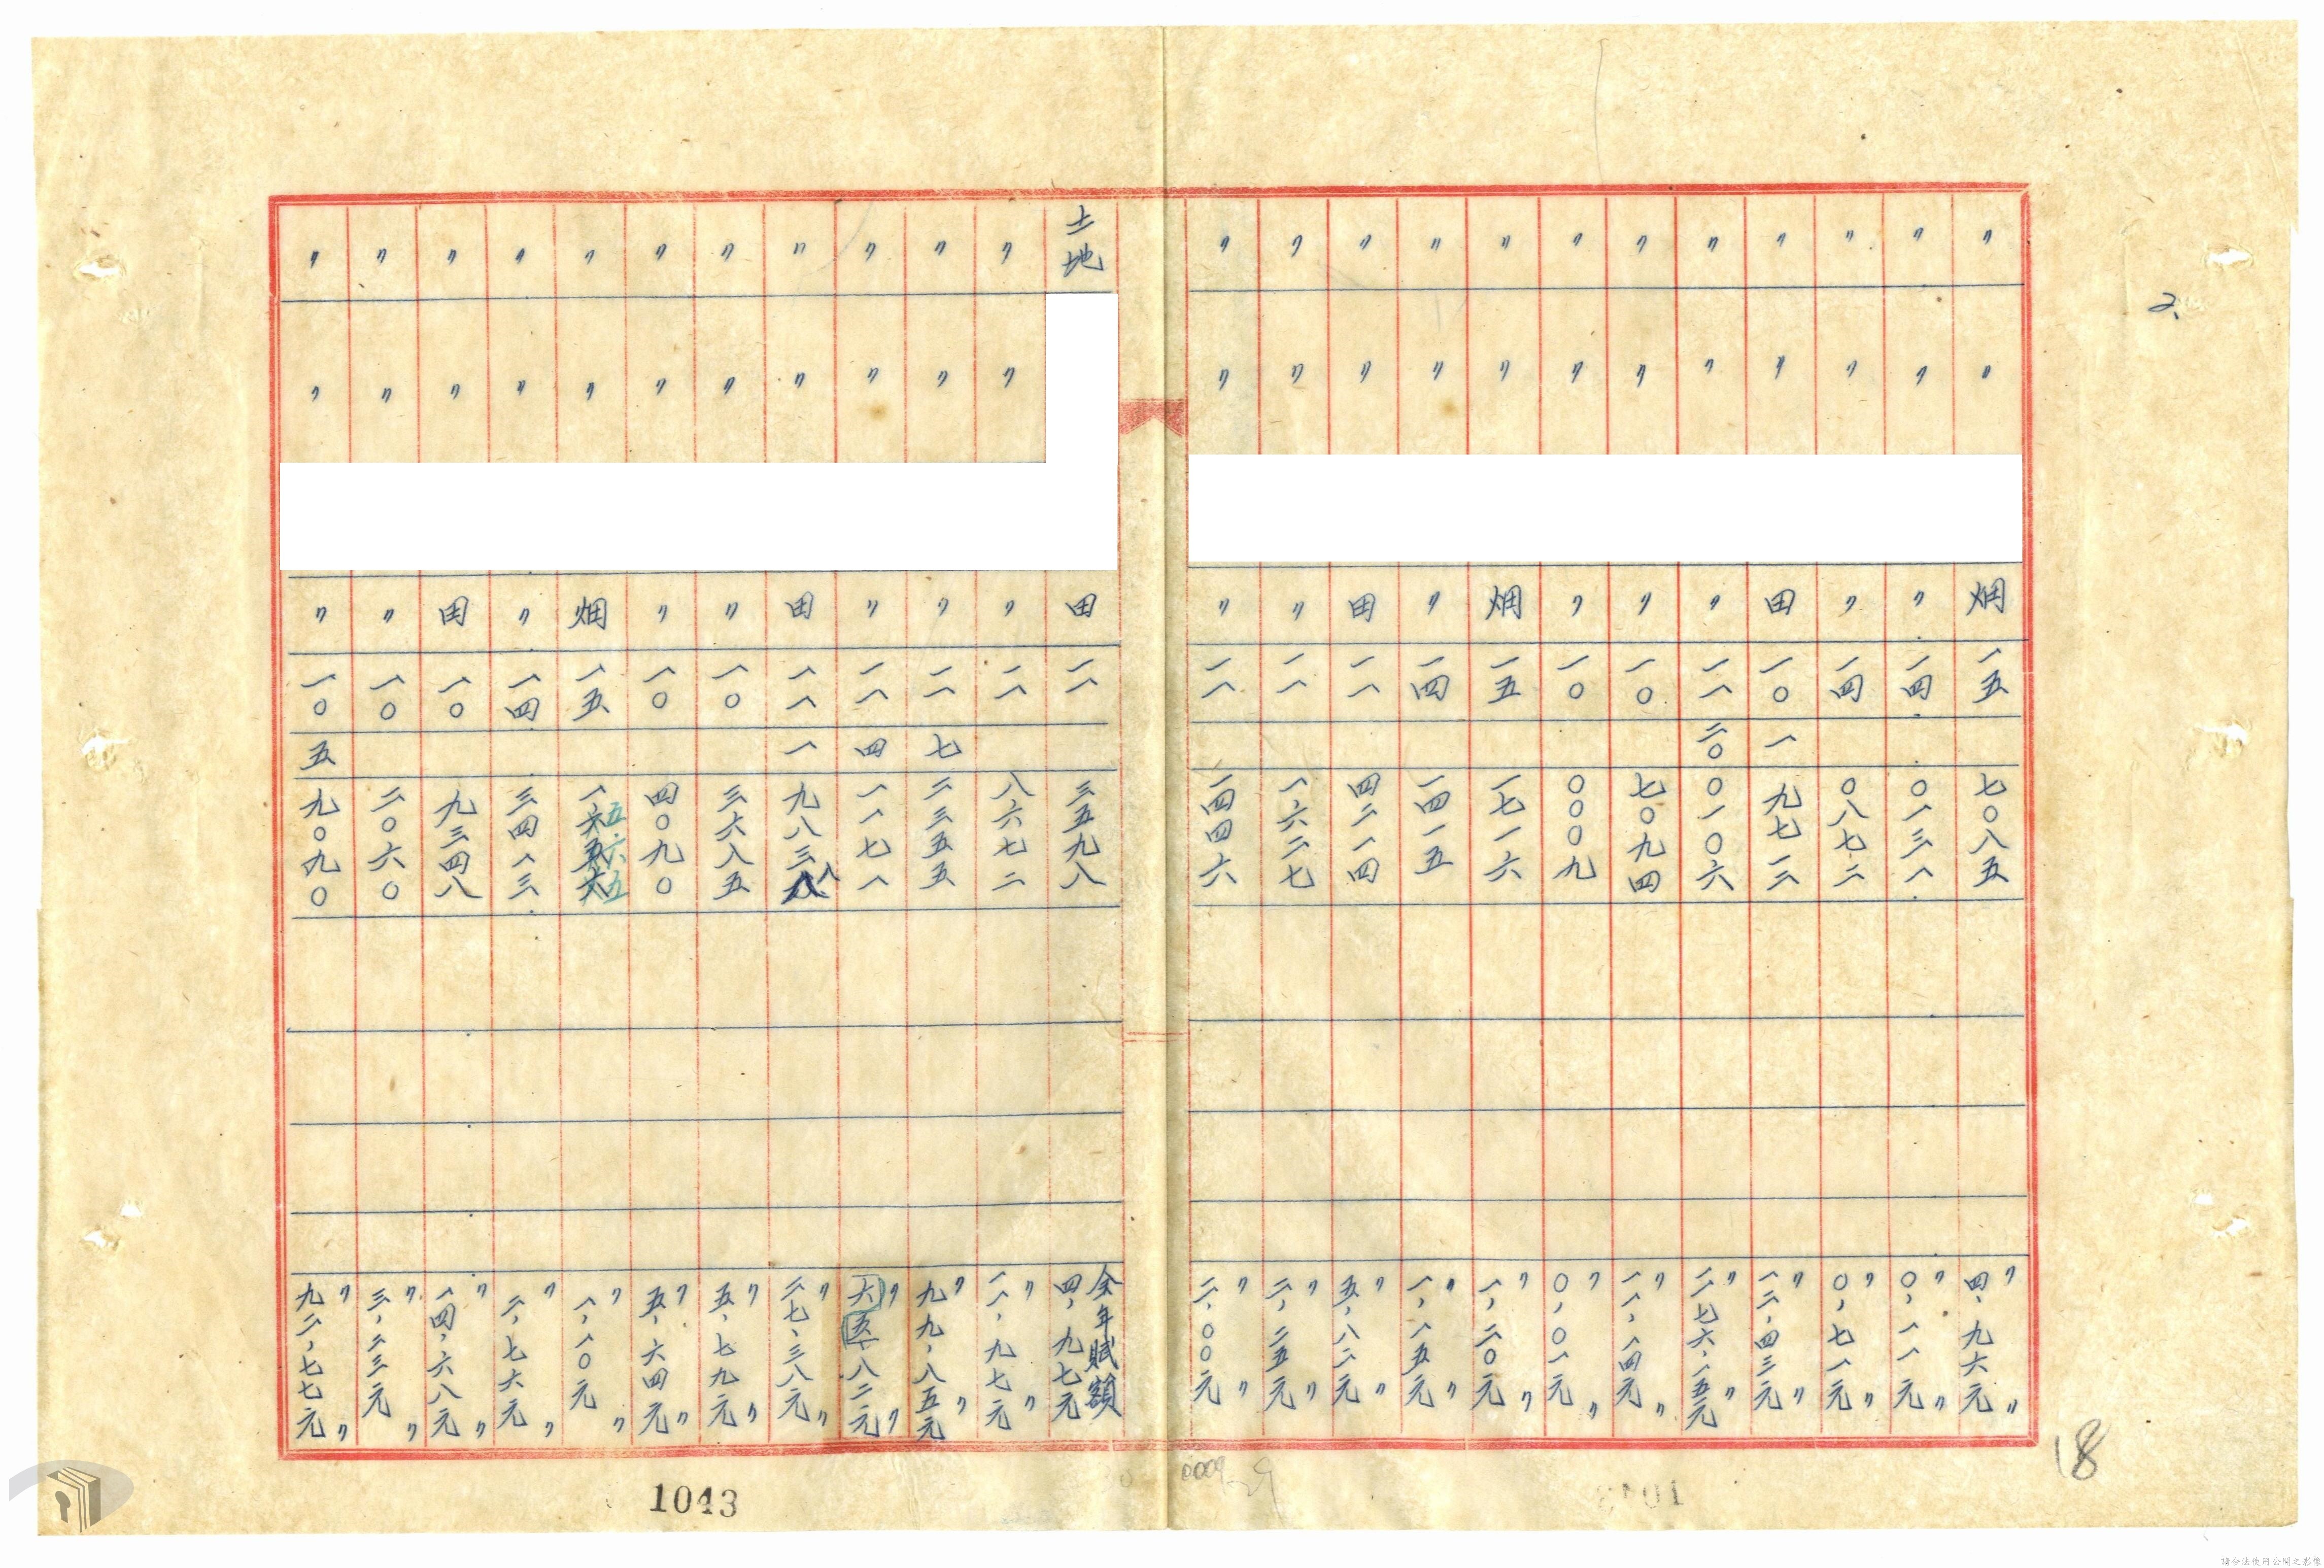 2、
〃 〃 畑 一五 七〇八五 〃 四、九六元 〃
〃 〃 〃 一四 〇一三一 〃 〇、一一元 〃
〃 〃 〃 一四 〇八七二 〃 〇、七一元 〃
〃 〃 田 一〇 一 九七一三 〃 一二、四三元 〃
〃 〃 〃 一一 二〇 〇一〇六 〃 二七六、一五元 〃
〃 〃 〃 一〇 七〇九四 〃 一一、一四元 〃
〃 〃 〃 一〇 〇〇〇九 〃 〇、〇一元 〃
〃 〃 畑 一五 一七一六 〃 一、二〇元 〃
〃 〃 〃 一四 一四一五 〃 一、一五元 〃
〃 〃 田 一一 四二一四 〃 五、八二元 〃
〃 〃 〃 一一 一六二七 〃 二、二五元 〃
〃 〃 〃 一一 一四四六 〃 二、〇〇元 〃
土地 田 一一 三五九八 全年賦額 四、九七元
〃 〃 〃 一一 八六七二 〃 一一、九七元 〃
〃 〃 〃 一一 七 二三五五 〃 九九、八五元 〃
〃 〃 〃 一一 四 一一七一 〃 六五、八二元 〃
〃 〃 田 一一 一 九八三八 〃 二七、三八元 〃
〃 〃 〃 一〇 三六八五 〃 五、七九元 〃
〃 〃 〃 一〇 四〇九〇 〃 五、六四元 〃
〃 〃 畑 一五 一五六五 〃 一、一〇元 〃
〃 〃 〃 一四 三四一三 〃 二、七六元 〃
〃 〃 田 一〇 九三四八 〃 一四、六八元 〃
〃 〃 〃 一〇 二〇六〇 〃 三、二三元 〃
〃 〃 〃 一〇 五 九〇九〇 〃 九二、七七元 〃
18
1043
請合法使用公開之影像